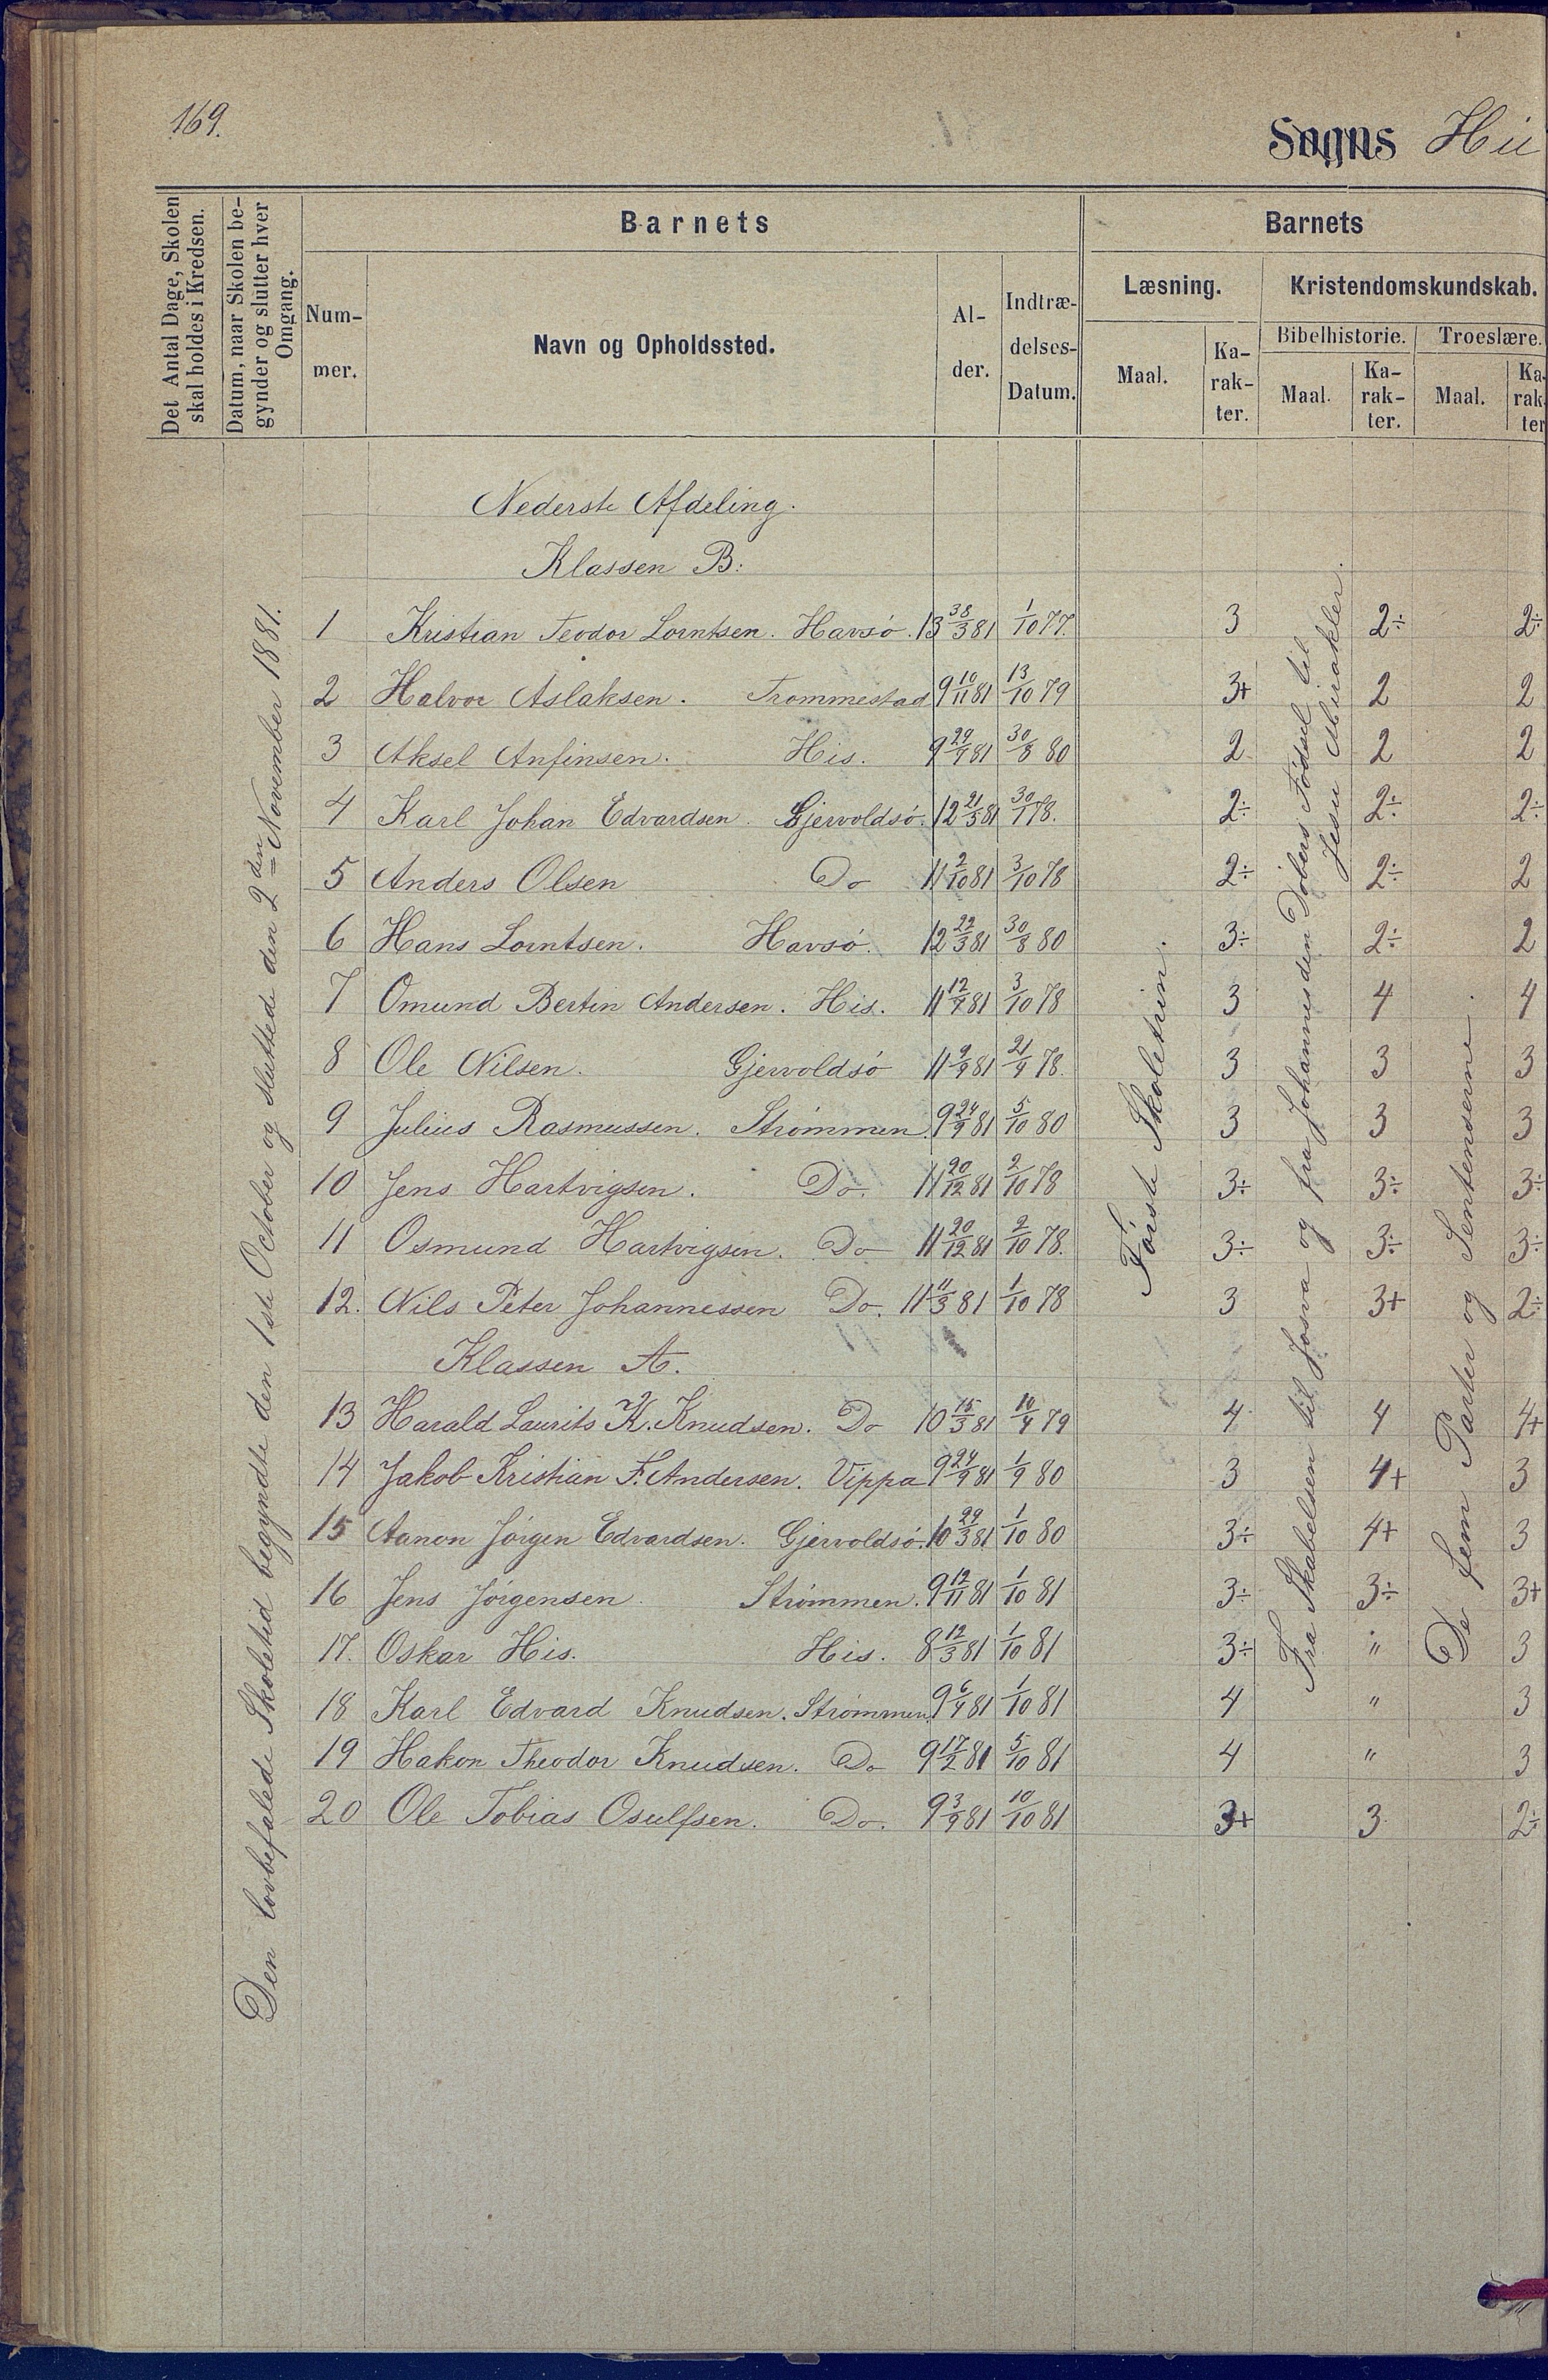 169.
Sogns Hii
Det Antal Dage, Skolen skal holdes i Kredsen.
Datum, naar Skolen begynder og slutter hver Omgang.
Barnets
Num-
mer.
Navn og Opholdssted.
Al-
der.
Indtræ-
delses-
Datum.
Barnets
Læsning.
Kristendomskundskab.
Maal.
Ka-
rak-
ter.
Bibelhistorie.
Troeslære.
Maal.
Ka-
rak-
ter.
Maal.
Ka-
rak-
ter
Den lovbefalede Skoletid begyndte den 1ste October og sluttede den 2den November 1881.
Første Skoletrin.
Fra Skabelsen til Josva og fra Johannes den Døbers Fødsel til
Jesu Mirakler.
De fem Parter og Sentenserne.
Nederste Afdeling.
Klassen B:
1 Kristian Teodor Lorntsen. Havsø. 13 38/3 81 1/10 77. 3 2÷ 2÷
2 Halvor Aslaksen. Trommestad 9 10/11 81 13/10 79 3+ 2 2
3 Aksel Anfinsen. His. 9 29/9 81 30/8 80 2 2 2
4 Karl Johan Edvardsen. Gjervoldsø. 12 21/5 81 30/1 78. 2÷ 2÷ 2÷
5 Anders Olsen Do 11 2/10 81 3/10 78 2÷ 2÷ 2
6 Hans Lorntsen. Havsø. 12 22/3 81 30/8 80 3÷ 2÷ 2
7 Omund Bertin Andersen. His. 11 12/4 81 3/10 78 3 4 4
8 Ole Nilsen. Gjervoldsø 11 9/9 81 21/4 78. 3 3 3
9 Julius Rasmussen. Strømmen. 9 24/9 81 5/10 80 3 3 3
10 Jens Hartvigsen. Do. 11 20/12 81 2/10 78 3÷ 3÷ 3÷
11 Osmund Hartvigsen. Do 11 20/12 81 2/10 78. 3÷ 3÷ 3÷
12. Nils Peter Johannessen Do. 11 11/3 81 1/10 78 3 3+ 2÷
Klassen A.
13 Harald Laurits K. Knudsen. Do 10 15/3 81 10/4 79 4 4 4+
14 Jakob Kristian F. Andersen. Vippa 9 24/9 81 1/9 80 3 4+ 3
15 Aanon Jørgen Edvardsen. Gjervoldsø. 10 29/3 81 1/10 80 3÷ 4+ 3
16 Jens Jørgensen Strømmen. 9 12/11 81 1/10 81 3÷ 3÷ 3+
17. Oskar His. His. 8 12/3 81 1/10 81 3÷ " 3
18 Karl Edvard Knudsen. Strømmen. 9 6/4 81 1/10 81 4 " 3
19 Hakon Theodor Knudsen. Do 9 17/2 81 5/10 81 4 " 3
20 Ole Tobias Osulfsen. Do. 9 3/9 81 10/10 81 3+ 3 2÷